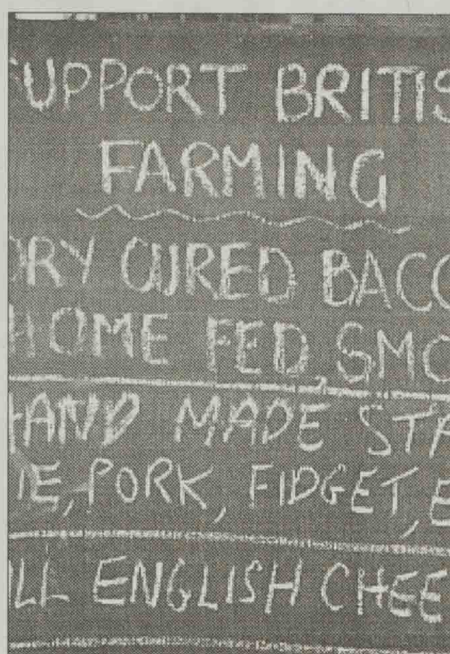 UPPORT BRITIS
FARMING
DRY CURED BACO
HOME FED, SMO
HAND MADE STA
IE, PORK, FIDGET, E
LL ENGLISH CHEE